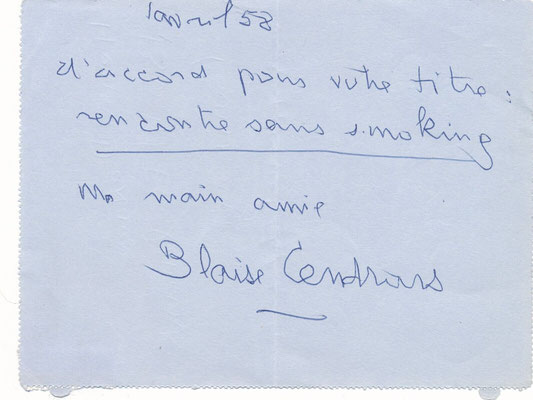 1 avril 58
d'accord pour votre titre :
rencontre sans smoking
Ma main amie
Blaise Cendrars